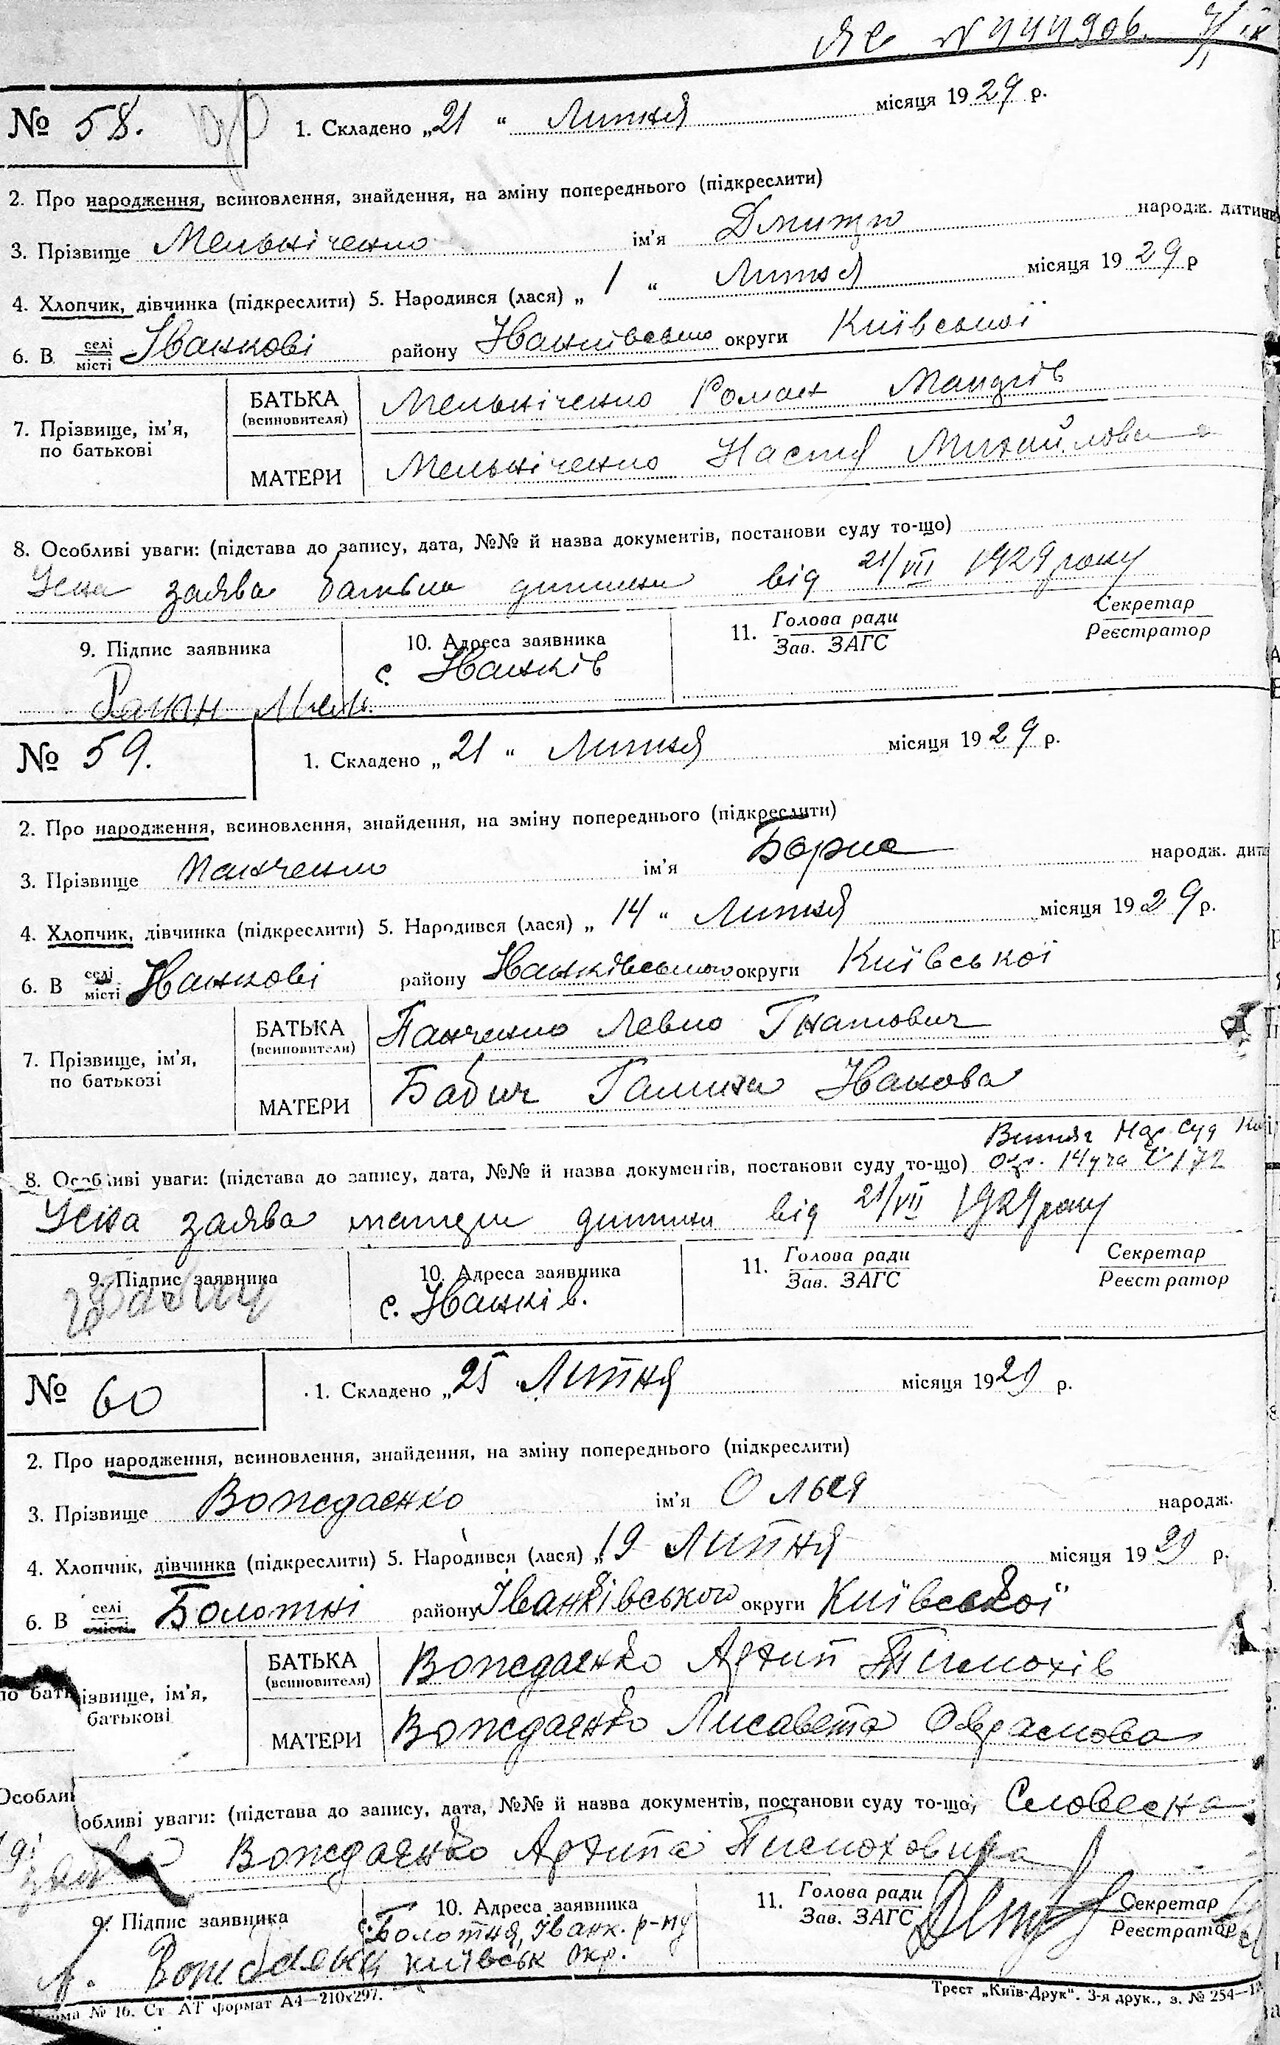 ЯС N 444906.
№ 58.
1. Складено „21“ Липня місяця 1929 р.
2. Про народження, всиновлення, знайдення, на зміну попереднього (підкреслити)
3. Прізвище Мельніченко ім'я Дмитро народж. дитини
4. Хлопчик, дівчинка (підкреслити) 5. Народився (лася) „1“ Липня місяця 1929 р
6. В селі місті Іванкові району Іванківського округи Київської
7. Прізвище, ім'я, по батькові
БАТЬКА (всиновителя) Мельніченко Роман
МАТЕРИ Мельніченко Настя Михайлова
8. Особливі уваги: (підстава до запису, дата, №№ й назва документів, постанови суду то-що)
Усна заява батька дитини від 21/VII 1929 року
9. Підпис заявника
10. Адреса заявника
11. Голова ради Зав. ЗАГС
Секретар Реєстратор
с. Іванків
Роман Мель.
№ 59.
1. Складено „21“ Липня місяця 1929 р.
2. Про народження, всиновлення, знайдення, на зміну попереднього (підкреслити)
3. Прізвище Панченко ім'я Борис народж. дит
4. Хлопчик, дівчинка (підкреслити) 5. Народився (лася) „14“ Липня місяця 1929 р.
6. В селі місті Іванкові району Іванківського округи Київської
7. Прізвище, ім'я, по батькові
БАТЬКА (всиновителя) Панченко Левко Гнатович
МАТЕРИ Бабич Галина Іванова
Витяг Нар. Суд
8. Особливі уваги: (підстава до запису, дата, №№ й назва документів, постанови суду то-що)
Усна заява матери дитини від 21/VII 1929 року
9. Підпис заявника
10. Адреса заявника
11. Голова ради Зав. ЗАГС
Секретар Реєстратор
Бабич
с. Іванків.
№ 60
1. Складено „25“ Липня місяця 1929 р.
2. Про народження, всиновлення, знайдення, на зміну попереднього (підкреслити)
3. Прізвище Вождаєнко ім'я Ольга народж.
4. Хлопчик, дівчинка (підкреслити) 5. Народився (лася) „19 Липня місяця 1929 р.
6. В селі місті Болотні району Іванківського округи Київської
Прізвище, ім'я, батькові
БАТЬКА (всиновителя) Вождаєнко Архип Тимохів
МАТЕРИ Вождаєнко Лисавета Оврамова
обливі уваги: (підстава до запису, дата, №№ й назва документів, постанови суду то-що) Словесна
Вождаєнко Архипа Тимоховича
9. Підпис заявника
10. Адреса заявника
11. Голова ради Зав. ЗАГС
Секретар Реєстратор
с. Болотня, Іванк. р-ну
Київськ окр.
Форма № 16. Ст. АТ формат А4—210х297.
Трест „Київ-Друк". 3-я друк., з. № 254—